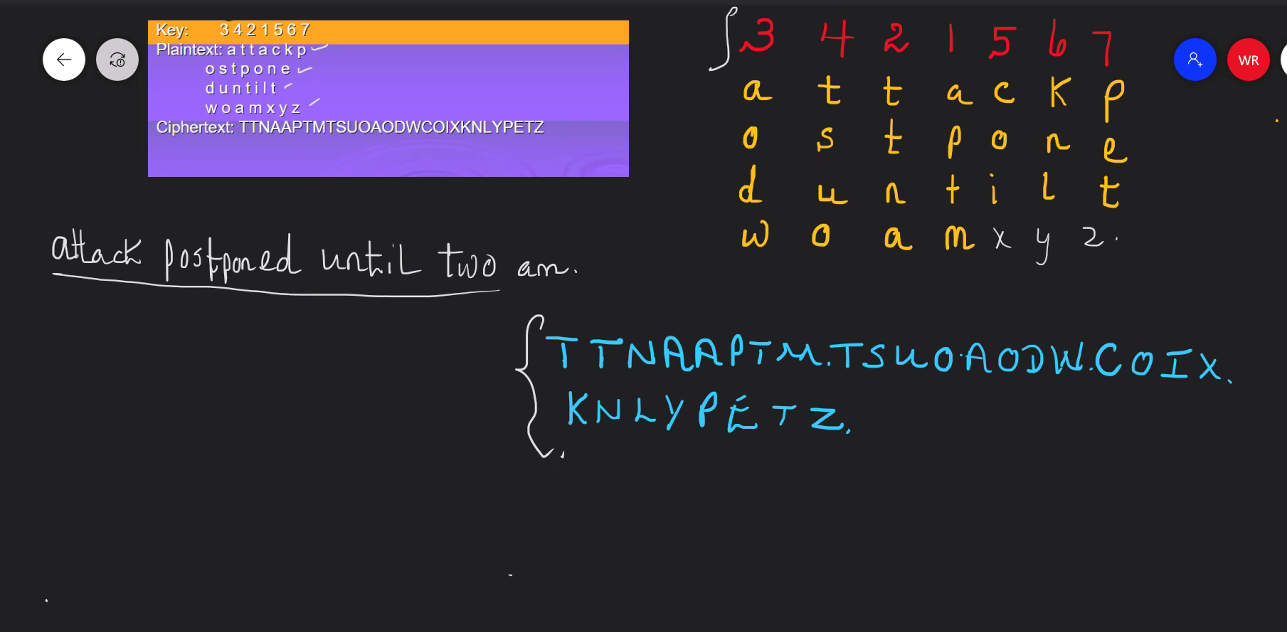 Key: 3 4 2 1 5 6 7
Plaintext: a t t a c k p
o s t p o n e
d u n t i l t
w o a m x y z
Ciphertext: TTNAAPTMTSUOAODWCOIXKNLYPETZ
3 4 2 1 5 6 7
a t t a c K p
o s t p o n e
d u n t i l t
w o a m x y z.
WR
attack postponed until two am.
TTNAAPTM.TSUO.AODW.COIX.
KNLYPETZ.